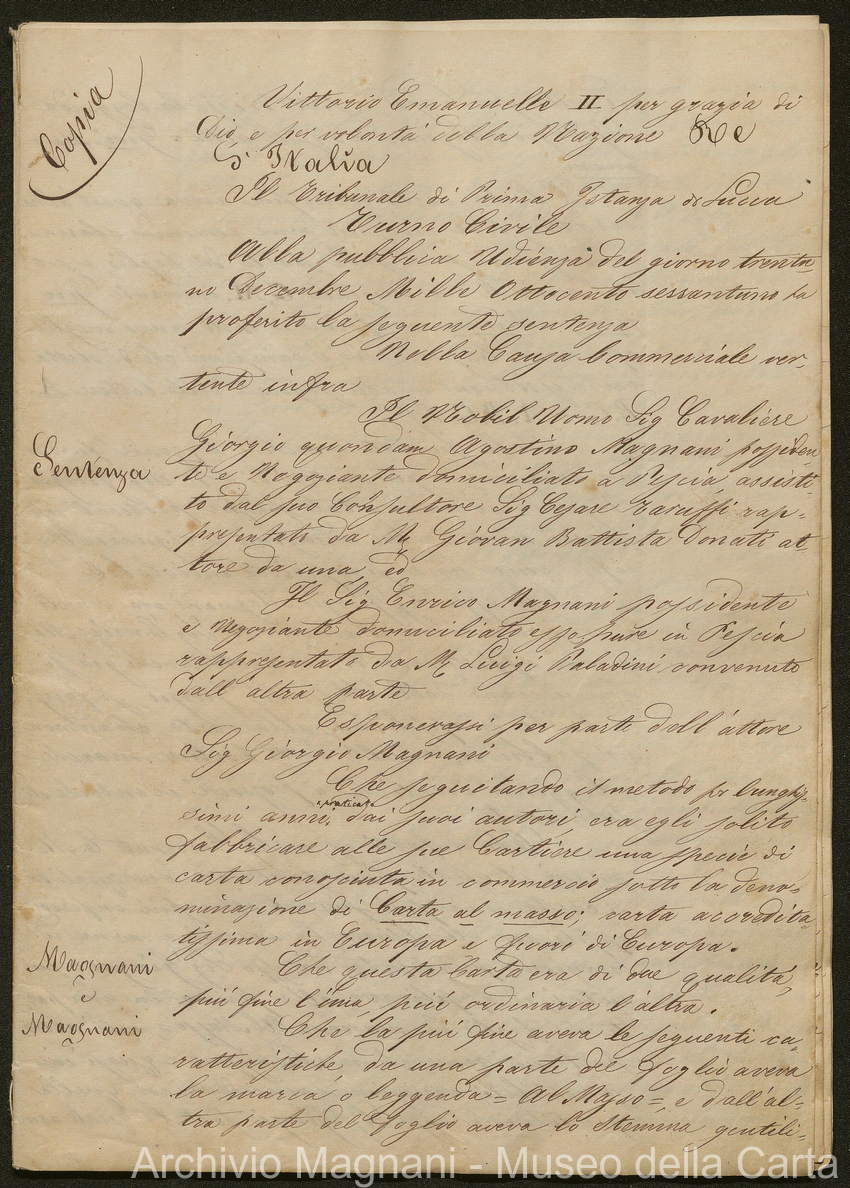 Copia
Vittorio Emanuelle II per grazia di
Dio, e per volontà della Nazione Re
d'Italia
Il Tribunale di Prima Istanza di Lucca
Turno Civile
Alla pubblica Udienza del giorno trentu-
no Decembre Mille Ottocento sessantuno ha
proferito la seguente sentenza
Nella Causa Commerciale ver-
tente infra
Il Nobil Uomo Sig Cavaliere
Giorgio quondam Agostino Magnani possiden-
te e Negoziante domiciliato a Pescia, assisti-
Sentenza
to dal suo Consultore Sig Cesare Taruffi rap-
presentato da Mr Giovan Battista Donati at-
tore da una, ed
Il Sig Enrico Magnani possidente
e Negoziante domiciliato esso pure in Pescia
rappresentato da Mr Luigi Paladini convenuto
dall'altra parte
Esponevasi per parte dell'attore
Sig Giorgio Magnani
Che seguitando il metodo per lunghis-
simi anni praticato dai suoi autori, era egli solito
fabbricare alle sue Cartiere una specie di
carta conosciuta in commercio sotto la deno-
minazione di Carta al masso; carta accredita-
tissima in Europa e fuori di Europa.
Magnani
e
Magnani
Che questa Carta era di due qualità,
più fine l'una, più ordinaria l'altra.
Che la più fine aveva le seguenti ca-
ratteristiche, da una parte del foglio aveva
la marca o leggenda = Al Masso =, e dall'al-
tra parte del foglio aveva lo Stemma gentili-
Archivio Magnani - Museo della Carta